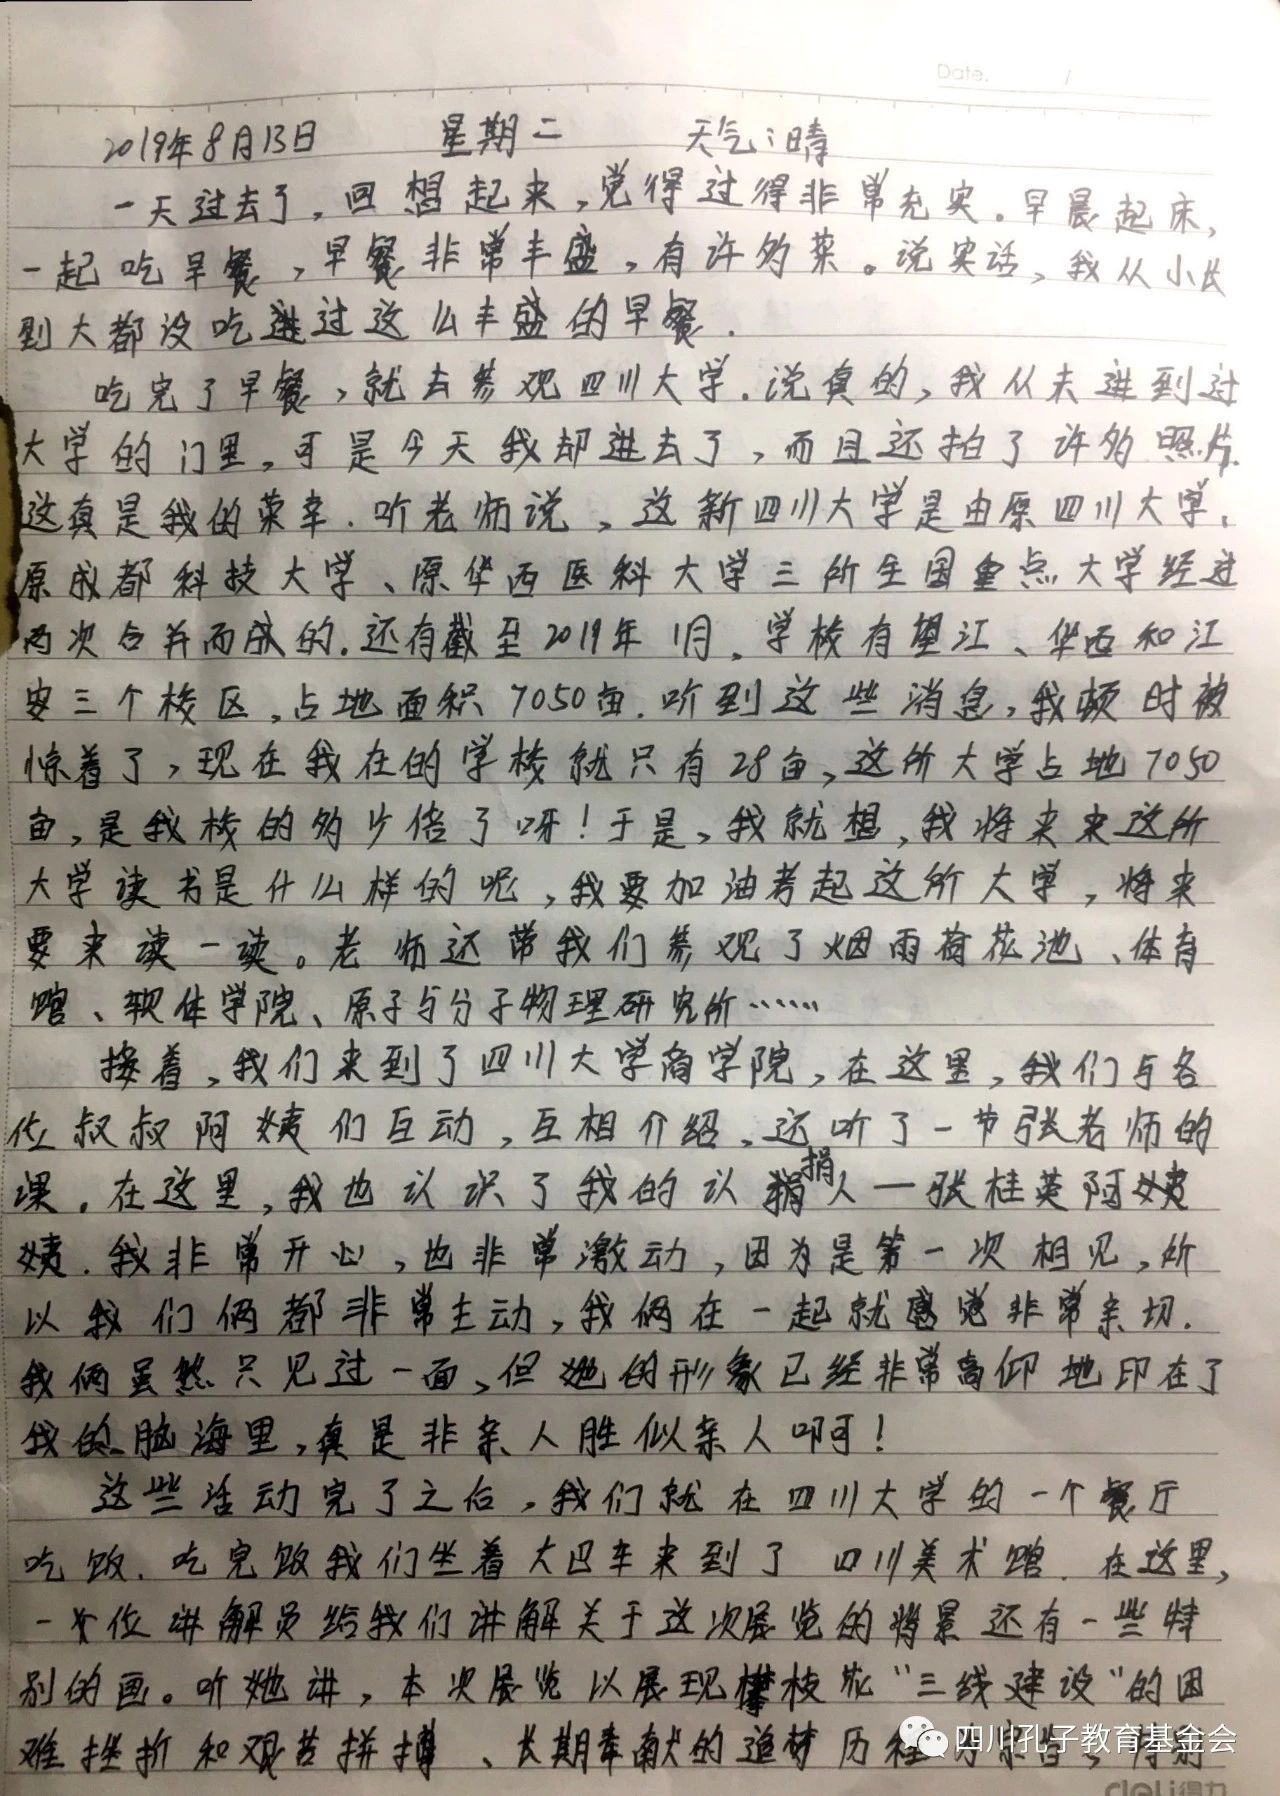 Date. /
2019年8月13日 星期二 天气:晴
一天过去了，回想起来，觉得过得非常充实。早晨起床，
一起吃早餐，早餐非常丰盛，有许多菜。说实话，我从小长
到大都没吃过这么丰盛的早餐.
吃完了早餐，就去参观四川大学.说真的，我从未进到过
大学的门里，可是今天我却进去了，而且还拍了许多照片.
这真是我的荣幸.听老师说，这新四川大学是由原四川大学、
原成都科技大学、原华西医科大学三所全国重点大学经过
两次合并而成的.还有截至2019年1月，学校有望江、华西和江
安三个校区，占地面积7050亩.听到这些消息，我顿时被
惊着了，现在我在的学校就只有28亩，这所大学占地7050
亩，是我校的多少倍了呀！于是，我就想，我将来来这所
大学读书是什么样的呢，我要加油考起这所大学，将来
要来读一读。老师还带我们参观了烟雨荷花池、体育
馆、软件学院、原子与分子物理研究所……
接着，我们来到了四川大学商学院，在这里，我们与各
位叔叔阿姨们互动，互相介绍，还听了一节张老师的
课。在这里，我也认识了我的认捐人—张桂英阿姨
姨.我非常开心，也非常激动，因为是第一次相见，所
以我们俩都非常主动，我俩在一起就感觉非常亲切.
我俩虽然只见过一面，但她的形象已经非常高仰地印在了
我的脑海里，真是非亲人胜似亲人啊！
这些活动完了之后，我们就在四川大学的一个餐厅
吃饭.吃完饭我们坐着大巴车来到了四川美术馆.在这里，
一位讲解员给我们讲解关于这次展览的背景还有一些特
别的画。听她讲，本次展览以展现攀枝花“三线建设”的困
难挫折和艰苦拼搏、长期奉献的追梦历程
四川孔子教育基金会
deli得力